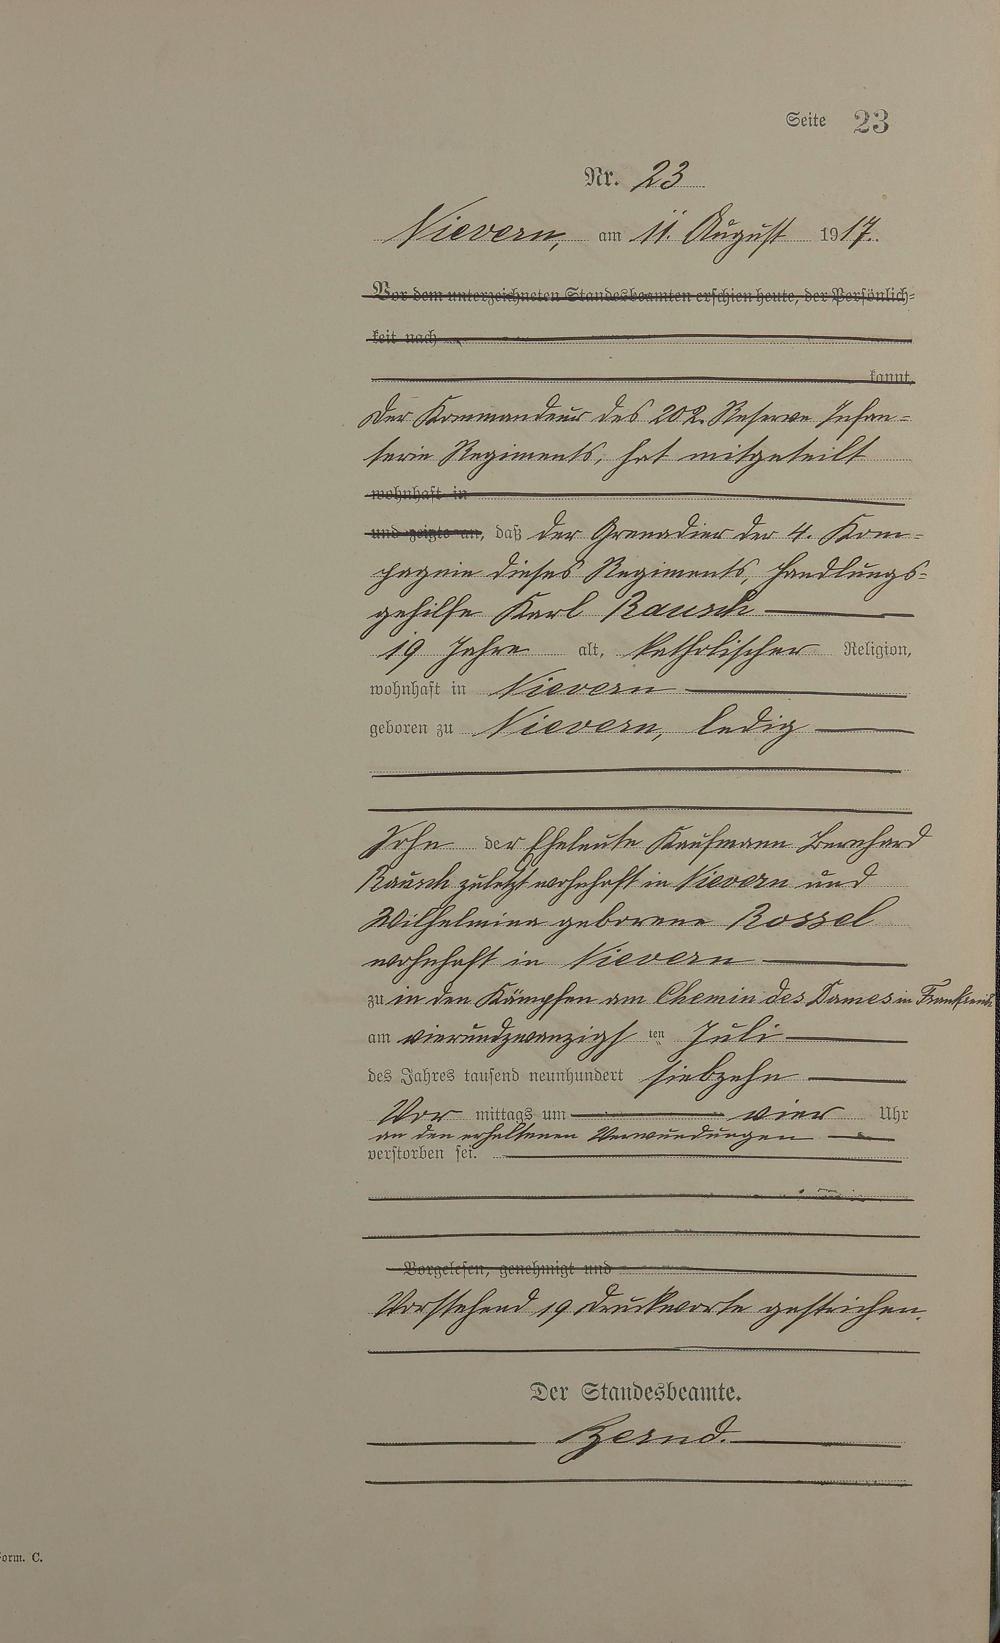 Seite 23
Nr. 23
Nievern, am 11. August 1917.
Vor dem unterzeichneten Standesbeamten erschien heute, der Persönlich-
keit nach
kannt,
Der Kommandeur des 202. Reserve Infan-
terie Regiments, hat mitgeteilt
wohnhaft in
und zeigte an, daß der Grenadier der 4. Kom-
pagnie dieses Regiments, Handlungs-
gehilfe Karl Rausch
19 Jahre alt, katholischer Religion,
wohnhaft in Nievern
geboren zu Nievern, ledig
Sohn der Eheleute Kaufmann Bernhard
Rausch zuletzt wohnhaft in Nievern und
Wilhelmina geborene Rossel
wohnhaft in Nievern
zu in den Kämpfen am Chemin des Dames in Frankreich
am vierundzwanzigsten Juli
des Jahres tausend neunhundert siebzehn
Vor mittags um vier Uhr
an den erhaltenen Verwundungen
verstorben sei.
Vorgelesen, genehmigt und
Vorstehend 19 Druckworte gestrichen.
Der Standesbeamte.
Bernd.
Form. C.